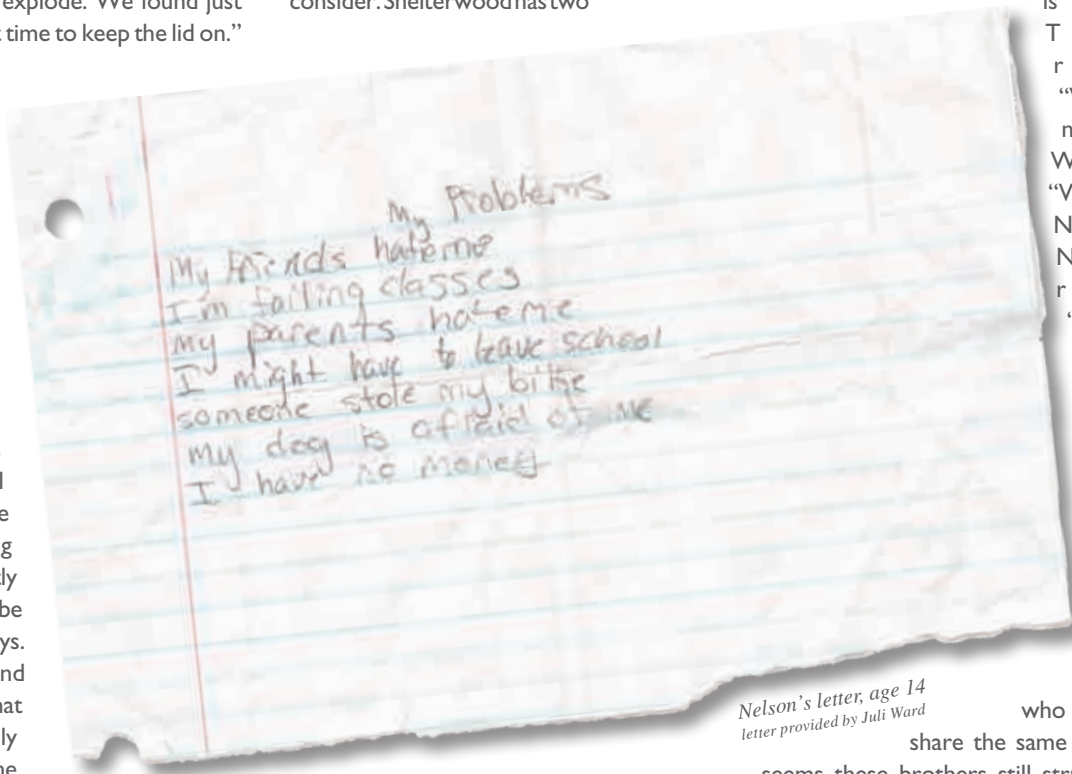 explode. We found just
time to keep the lid on.”
consider. Shelterwood has two
is
T
r
W
N
N
r
My Problems
My friends hate me
I'm failing classes
my parents hate me
I might have to leave school
someone stole my bike
my dog is afraid of me
I have no money
be
ys.
Nelson’s letter, age 14
letter provided by Juli Ward
who
share the same
seems these brothers still